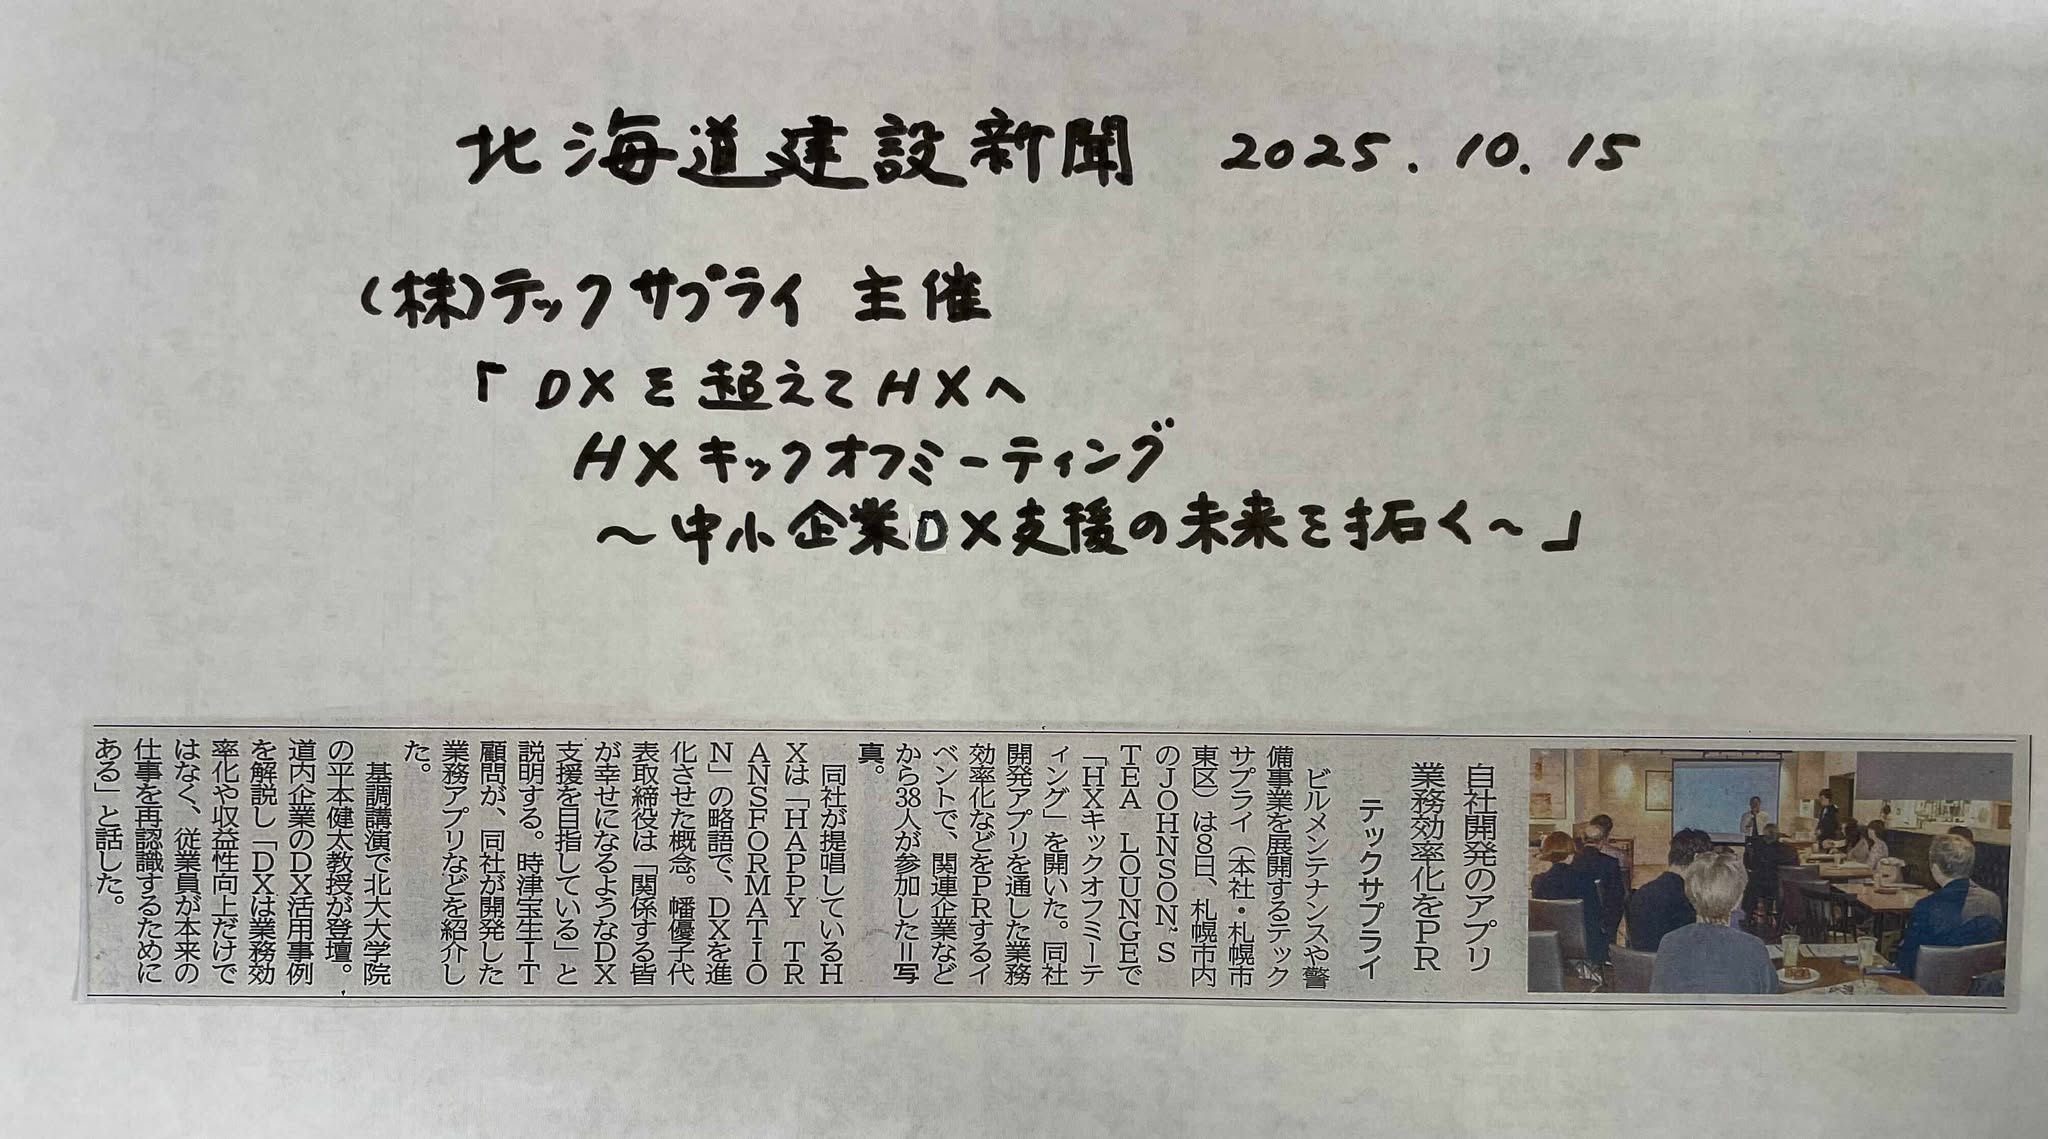 北海道建設新聞 2025.10.15
(株)テックサプライ 主催
「DXを超えてHXへ
HXキックオフミーティング
～中小企業DX支援の未来を拓く～」
自社開発のアプリ
業務効率化をPR
テックサプライ
ビルメンテナンスや警
備事業を展開するテック
サプライ（本社・札幌市
東区）は8日、札幌市内
のJOHNSON`S
TEA LOUNGEで
「HXキックオフミーテ
ィング」を開いた。同社
開発アプリを通した業務
効率化などをPRするイ
ベントで、関連企業など
から38人が参加した＝写
真。
同社が提唱しているH
Xは「HAPPY TR
ANSFORMATIO
N」の略語で、DXを進
化させた概念。幡優子代
表取締役は「関係する皆
が幸せになるようなDX
支援を目指している」と
説明する。時津宝生IT
顧問が、同社が開発した
業務アプリなどを紹介し
た。
基調講演で北大大学院
の平本健太教授が登壇。
道内企業のDX活用事例
を解説し「DXは業務効
率化や収益性向上だけで
はなく、従業員が本来の
仕事を再認識するために
ある」と話した。